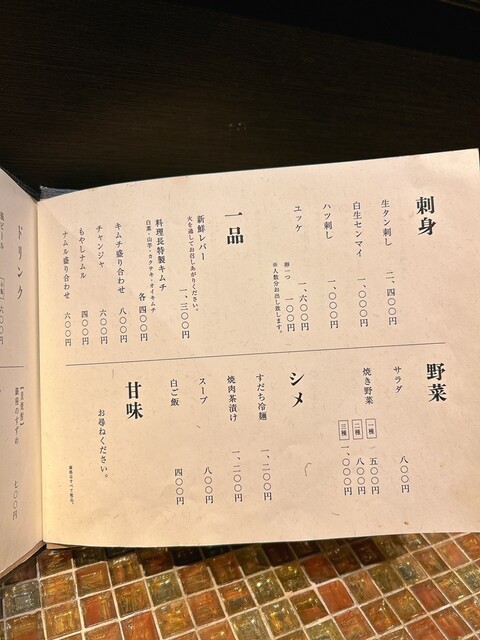 刺身
生タン刺し 二、四〇〇円
白生センマイ 一、〇〇〇円
ハツ刺し 一、〇〇〇円
ユッケ 一、六〇〇円
卵一つ 一〇〇円
※人数分お出し致します。
一品
新鮮レバー 一、三〇〇円
火を通してお召しあがりください。
料理長特製キムチ 各 四〇〇円
白菜・山芋・カクテキ・オイキムチ
キムチ盛り合わせ 八〇〇円
チャンジャ 六〇〇円
もやしナムル 四〇〇円
ナムル盛り合わせ 六〇〇円
野菜
サラダ 八〇〇円
焼き野菜
一種 五〇〇円
二種 八〇〇円
三種 一、〇〇〇円
シメ
すだち冷麺 一、二〇〇円
焼肉茶漬け 一、二〇〇円
スープ 八〇〇円
白ご飯 四〇〇円
甘味
お尋ねください。
ドリンク
六〇〇円
銀座のすずめ 七〇〇円